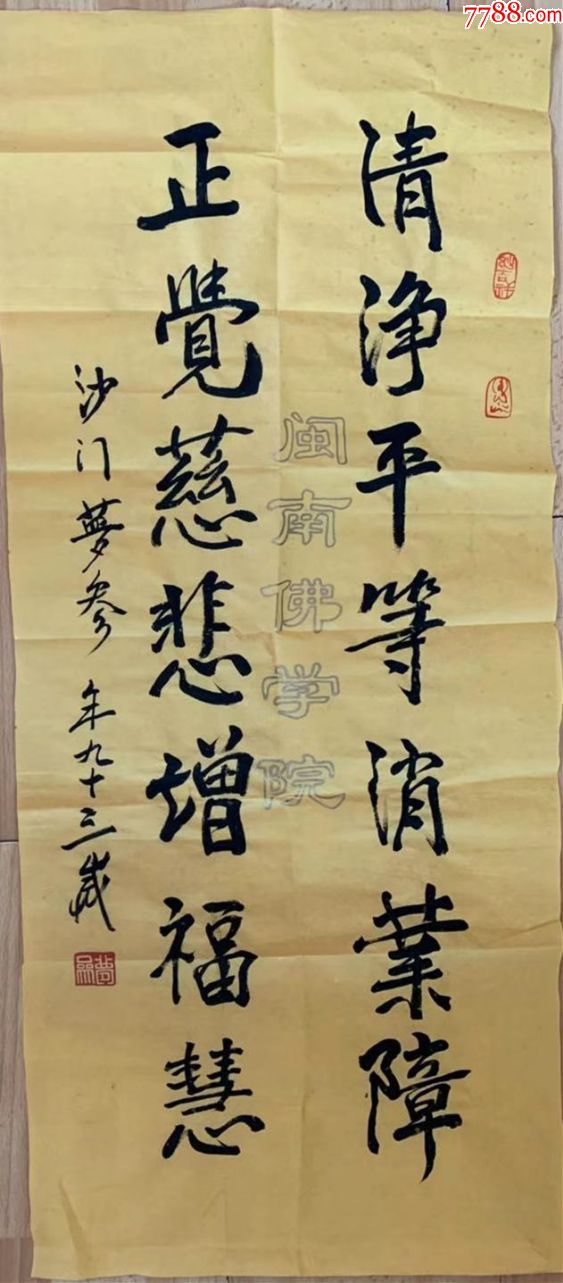 7788.com
清浄平等消業障
正覺慈悲增福慧
沙门夢參 年九十三歲
闽南佛学院
妙吉祥